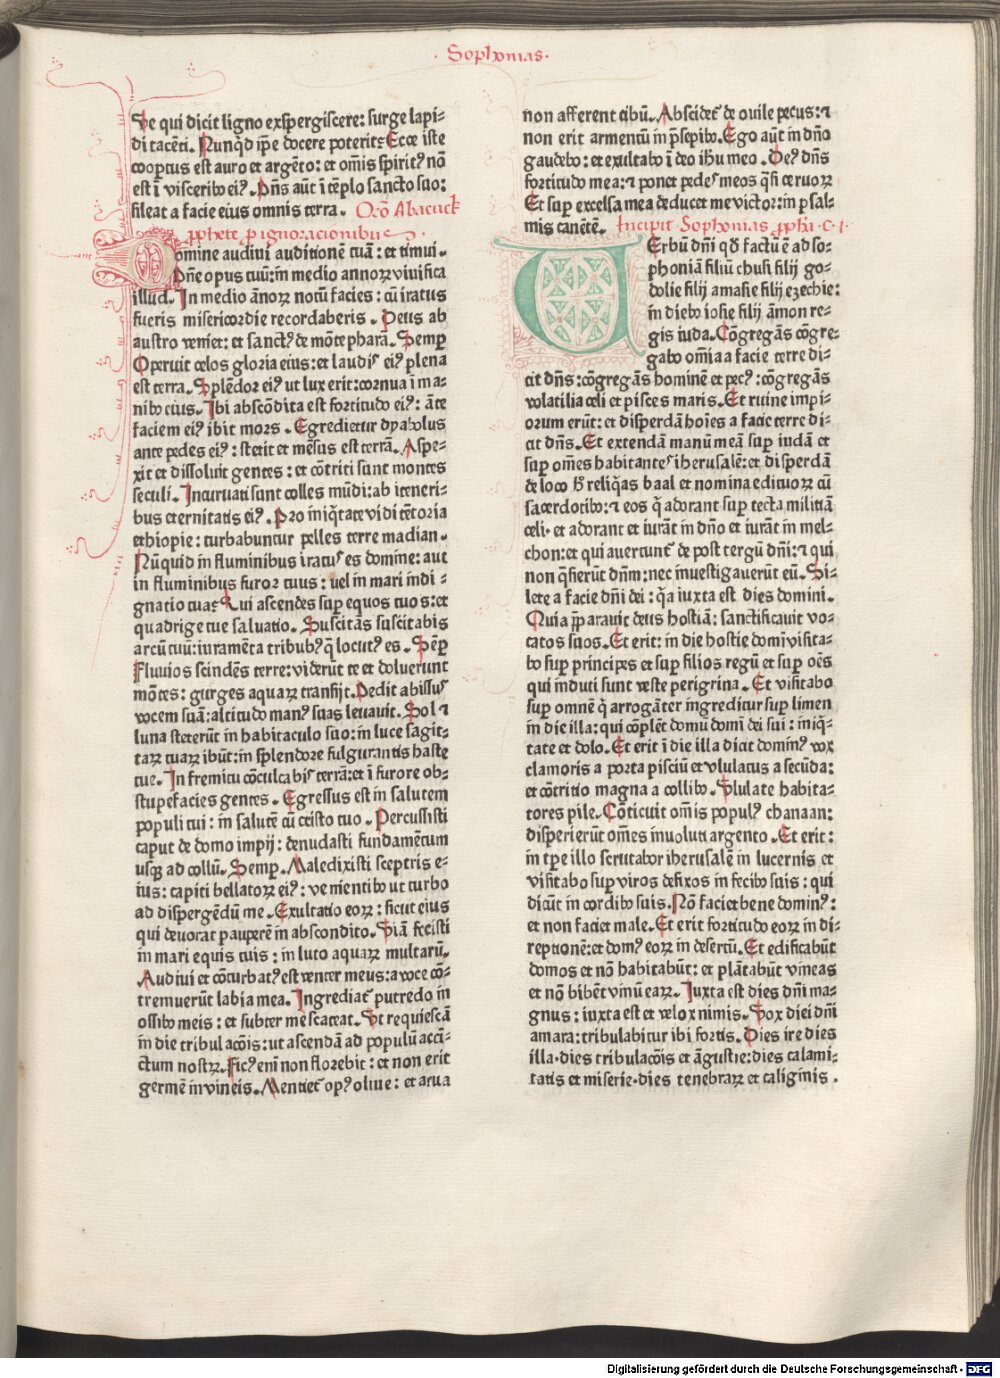 · Sophonias ·
Ve qui dicit ligno expergiscere: surge lapi-
di tacēti. Nunqͥd ip̄e docere poterit? Ecce iste
coopertus est auro et argēto: et om̄is spiritꝰ nō
est ī visceribꝰ eiꝰ. Dn̄s aūt ī tēplo sancto suo:
sileat a facie eius omnis terra. Orō Abacuck
ꝓphete ꝓ ignoracionibus.
Domine audiui auditionē tuā: et timui.
Dn̄e opus tuū: in medio annoꝝ viuifica
illud. In medio ānoꝝ notū facies: cū iratus
fueris misericordie recordaberis. Deus ab
austro veniet: et sanctꝰ de mōte pharā. Semꝑ
Operuit celos gloria eius: et laudis eiꝰ plena
est terra. Splēdor eiꝰ ut lux erit: cornua ī ma-
nibꝰ eius. Ibi abscōdita est fortitudo eiꝰ: āte
faciem eiꝰ ibit mors. Egredietur dyabolus
ante pedes eiꝰ: stetit et mēsus est terrā. Aspe-
xit et dissoluit gentes: et cōtriti sunt montes
seculi. Incuruati sunt colles mūdi: ab iteneri-
bus eternitatis eiꝰ. Pro iniqͥtate vidi tētoria
ethiopie: turbabuntur pelles terre madian.
Nūquid in fluminibus iratus es domine: aut
in fluminibus furor tuus: uel in mari indi-
gnatio tua? Qui ascendes suꝑ equos tuos: et
quadrige tue saluatio. Suscitās suscitabis
arcū tuū: iuramēta tribubꝰ q̄ locutꝰ es. Sēꝑ
Fluuios scindēs terre: viderūt te et doluerunt
mōtes: gurges aquaꝝ transijt. Dedit abissus
vocem suā: altitudo manꝰ suas leuauit. Sol ⁊
luna steterūt in habitaculo suo: in luce sagit-
taꝝ tuaꝝ ibūt: in splendore fulgurantis haste
tue. In fremitu cōculcabis terrā: et ī furore ob-
stupefacies gentes. Egressus est in salutem
populi tui: in salutē cū cristo tuo. Percussisti
caput de domo impij: denudasti fundamētum
usqꝫ ad collū. Semꝑ. Maledixisti sceptris e-
ius: capiti bellatoꝝ eiꝰ: venientibꝰ ut turbo
ad dispergēdū me. Exultatio eoꝝ: sicut eius
qui deuorat pauperē in abscondito. Viā fecisti
in mari equis tuis: in luto aquaꝝ multarū.
Audiui et cōturbatꝰ est venter meus: a voce cō-
tremuerūt labia mea. Ingrediat̄ putredo in
ossibꝰ meis: et subter me scateat. Vt requiescā
in die tribulacōis: ut ascendā ad populū acci-
ctum nostꝝ. Ficꝰ eni non florebit: et non erit
germē in vineis. Mentiet̄ opꝰ oliue: et arua
non afferent cibū. Abscidet̄ de ouile pecus: ⁊
non erit armentū in p̄sepibꝰ. Ego aūt in dn̄o
gaudebo: et exultabo ī deo ih̄u meo. Deꝰ dn̄s
fortitudo mea: ⁊ ponet pedes meos q̄si ceruoꝝ
Et suꝑ excelsa mea deducet me victor: in psal-
mis canētē. Incipit Sophonias ꝓph̄a. C. I.
Verbū dn̄i qd̄ factū ē ad so-
phoniā filiū chusi filij go-
dolie filij amasie filij ezechie:
in diebꝰ iosie filij āmon re-
gis iuda. Cōgregās cōgre-
gabo om̄ia a facie terre di-
cit dn̄s: cōgregās hominē et pecꝰ: cōgregās
volatilia celi et pisces maris. Et ruine impi-
orum erūt: et disperdā hoīes a facie terre di-
cit dn̄s. Et extendā manū meā suꝑ iudā et
suꝑ om̄es habitantes iherusalē: et disperdā
de loco h̄ reliqͥas baal et nomina edituoꝝ cū
sacerdotibꝰ: ⁊ eos q̄ adorant suꝑ tecta militiā
celi. et adorant et iurāt in dn̄o et iurāt in mel-
chon: et qui auertunt̄ de post tergū dn̄i: ⁊ qui
non q̄sierūt dn̄m: nec inuestigauerūt eū. Si-
lete a facie dn̄i dei: qͣ iuxta est dies domini.
Quia p̄parauit deus hostiā: sanctificauit vo-
catos suos. Et erit: in die hostie domī visita-
bo suꝑ principes et suꝑ filios regū et suꝑ oēs
qui induti sunt veste perigrina. Et visitabo
suꝑ omnē q̄ arrogāter ingreditur suꝑ limen
in die illa: qui cōplēt domū domī dei sui: iniqͥ-
tate et dolo. Et erit ī die illa dicit dominꝰ vox
clamoris a porta pisciū et vlulatus a secūda:
et cōtritio magna a collibꝰ. Vlulate habita-
tores pile. Cōticuit om̄is populꝰ chanaan:
disperierūt om̄es inuoluti argento. Et erit:
in tp̄e illo scrutabor iherusalē in lucernis et
visitabo suꝑ viros defixos in fecibꝰ suis: qui
dicūt in cordibꝰ suis. Nō faciet bene dominꝰ:
et non faciet male. Et erit fortitudo eoꝝ in di-
reptionē: et domꝰ eoꝝ in desertū. Et edificabūt
domos et nō habitabūt: et plātabūt vineas
et nō bibēt vinū eaꝝ. Iuxta est dies dn̄i ma-
gnus: iuxta est et velox nimis. Vox diei dn̄i
amara: tribulabitur ibi fortis. Dies ire dies
illa. dies tribulacōis et āgustie: dies calami-
tatis et miserie. dies tenebraꝝ et caliginis.
Digitalisierung gefördert durch die Deutsche Forschungsgemeinschaft - DFG